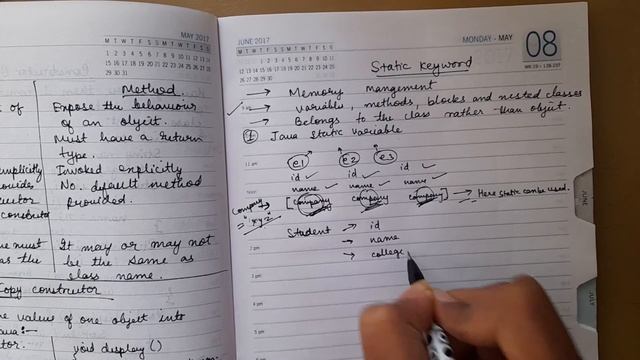 MAY 2017
M T W T F S S M T W T F S S
1 2 3 4 5 6 7 8 9 10 11 12 13 14
15 16 17 18 19 20 21 22 23 24 25 26 27 28
29 30 31
Method.
t of
Expose the behaviour
of an object.
Must have a return
type.
mplicitly
Invoked explicitly
ovides
No default method
uctor
Provided.
constructor
me must
It may or may not
as the
be the same as
class name.
Copy constructor
e values of one object into
ava:-
tor.
void display ()
JUNE 2017
M T W T F S S M T W T F S S
MONDAY - MAY
08
Static Keyword
→ Memory mangement
→ variables, methods, blocks and nested classes
→ Belongs to the class rather than object.
① Java static variable
11 am
e1 e2 e3
id ✓ id ✓ id ✓
Noon
name ✓ name ✓ name ✓
company →
= "xyz"
[company company company] → Here static can be used.
Student → id
2 pm
→ name
→ college
3 pm
4 pm
5 pm
JUNE
JULY